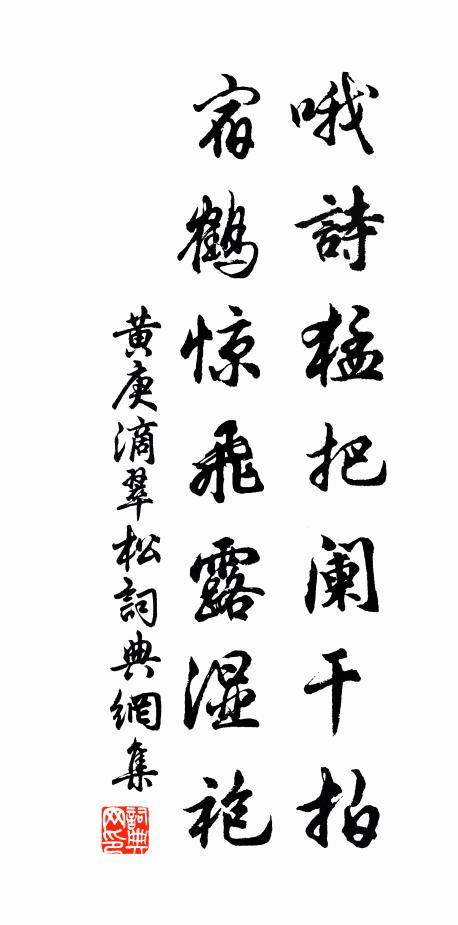 哦詩猛把阑干拍
宿鶴惊飛露湿袍
黄庚滴翠松詞典網集
詞典網印